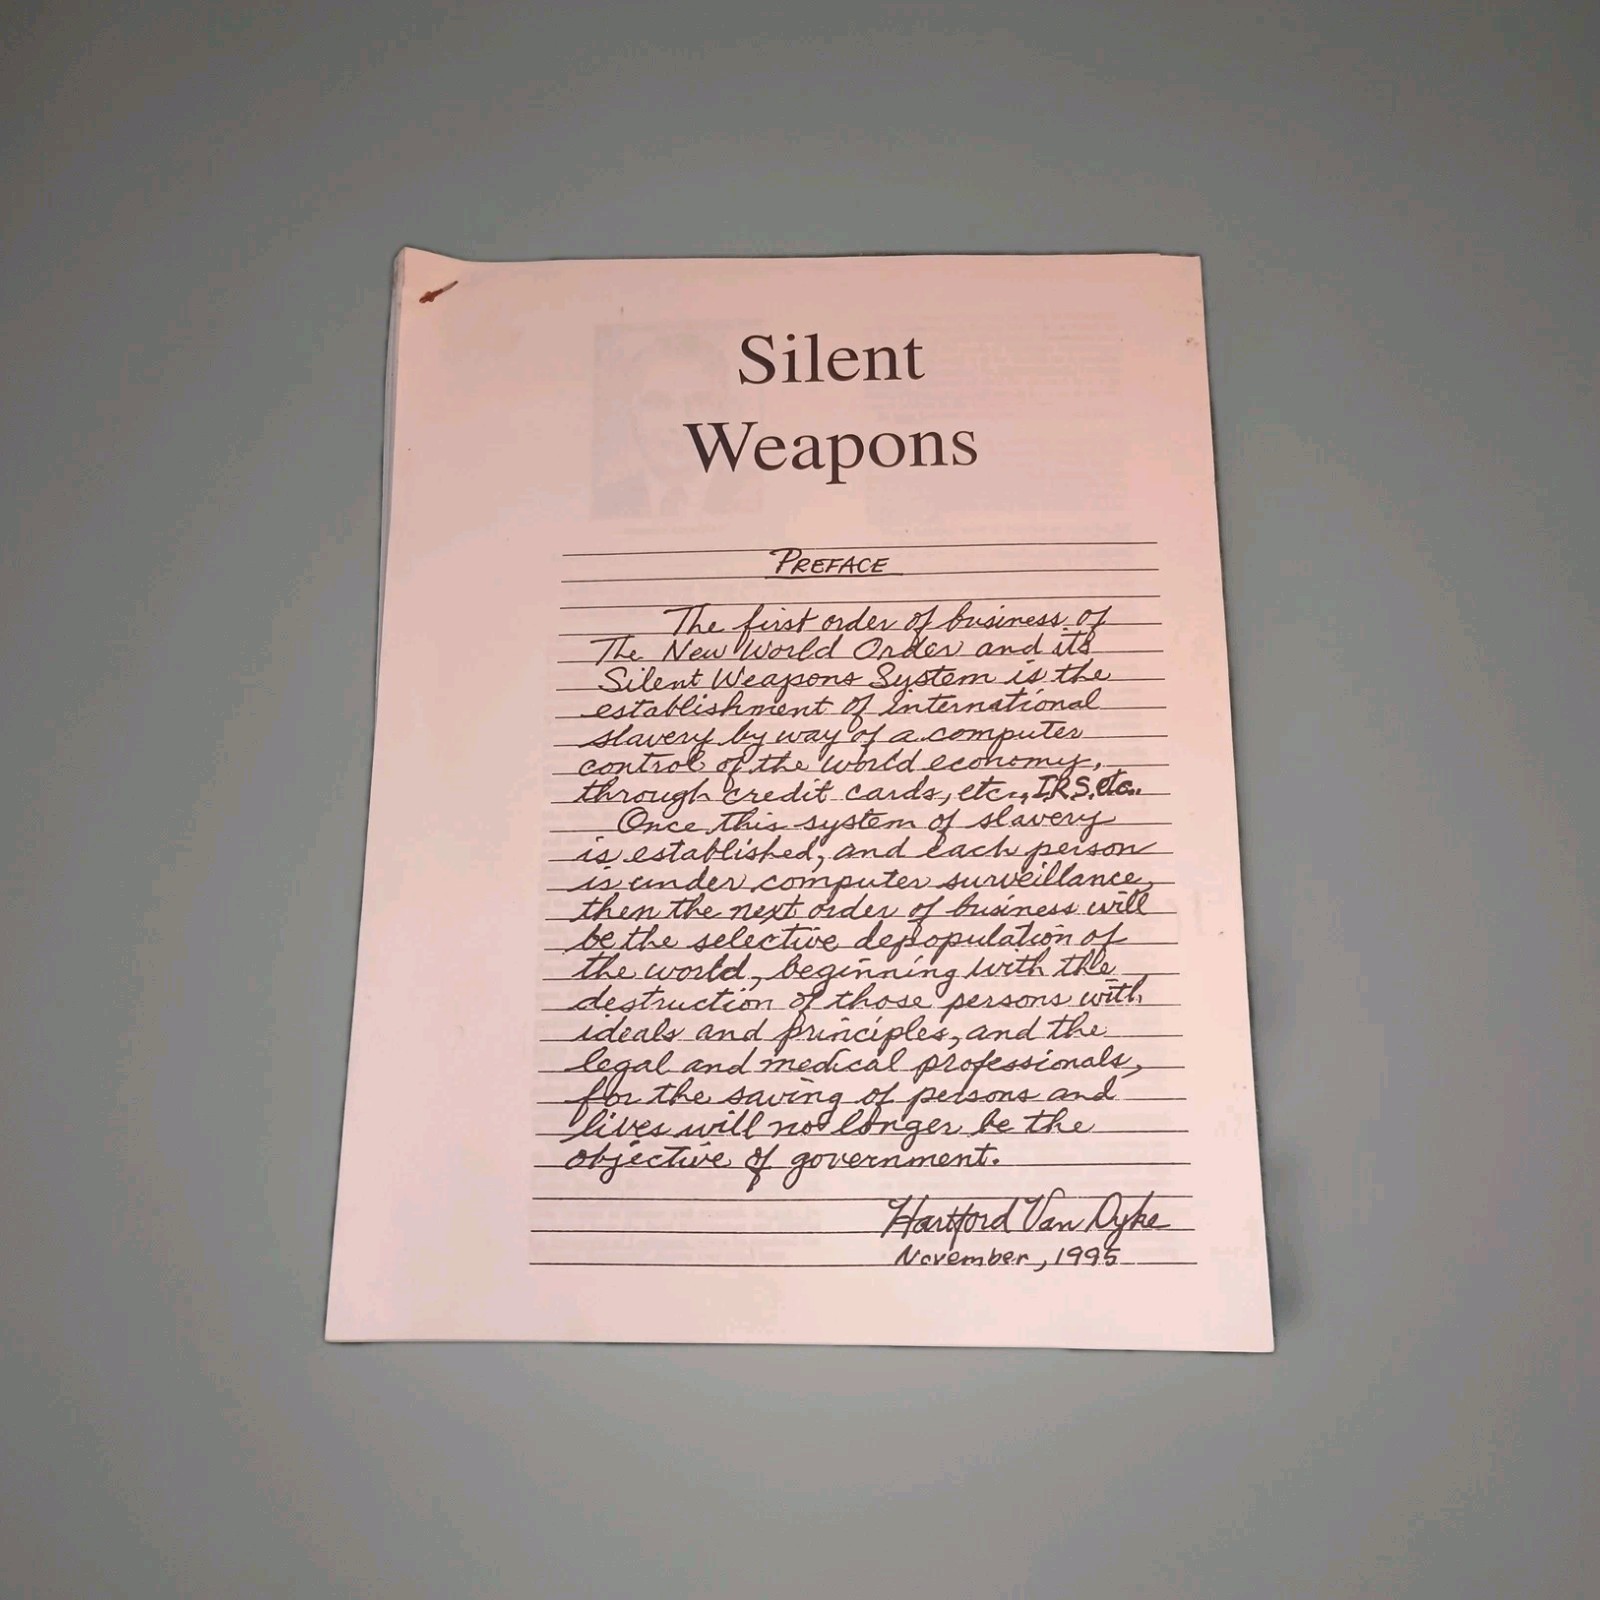 Silent
Weapons
PREFACE
The first order of business of
The New World Order and its
Silent Weapons System is the
establishment of international
slavery by way of a computer
control of the world economy,
through credit cards, etc., I.R.S. etc..
Once this system of slavery
is established, and each person
is under computer surveillance,
then the next order of business will
be the selective depopulation of
the world, beginning with the
destruction of those persons with
ideals and principles, and the
legal and medical professionals,
for the saving of persons and
lives will no longer be the
objective of government.
Hartford Van Dyke
November, 1995